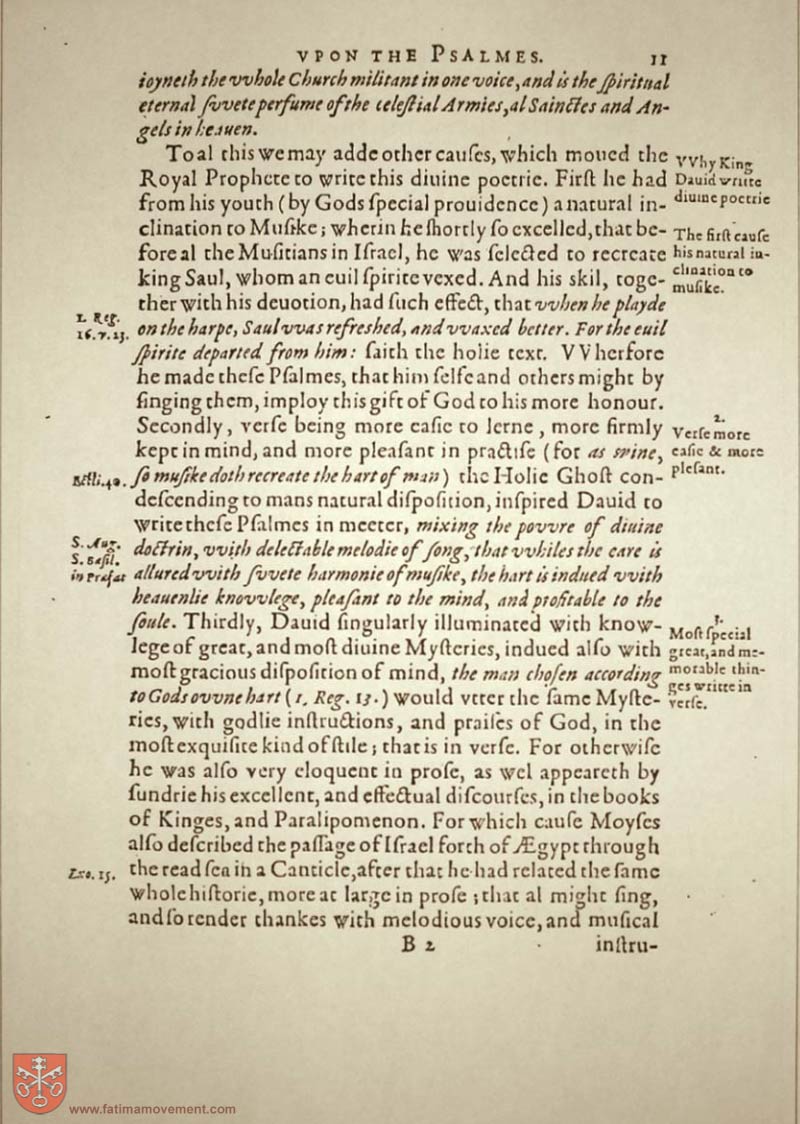 VPON THE PSALMES. 11
ioyneth the vvhole Church militant in one voice, and is the ſpiritual
eternal ſvvete perfume of the celeſtial Armies, al Sainctes and An-
gels in heauen.
To al this we may adde other cauſes, which moued the
Royal Prophete to write this diuine poetrie. Firſt he had
from his youth (by Gods ſpecial prouidence) a natural in-
clination to Muſike; wherin he ſhortly ſo excelled, that be-
fore al the Muſitians in Iſrael, he was ſelected to recreate
king Saul, whom an euil ſpirite vexed. And his skil, toge-
ther with his deuotion, had ſuch effect, that vvhen he playde
on the harpe, Saul vvas refreshed, and vvaxed better. For the euil
ſpirite departed from him: ſaith the holie text. VVherfore
he made theſe Pſalmes, that him ſelfe and others might by
ſinging them, imploy this gift of God to his more honour.
Secondly, verſe being more eaſie to lerne, more firmly
kept in mind, and more pleaſant in practiſe (for as wine,
ſo muſike doth recreate the hart of man) the Holie Ghoſt con-
deſcending to mans natural diſpoſition, inſpired Dauid to
write theſe Pſalmes in meeter, mixing the povvre of diuine
doctrin, vvith delectable melodie of ſong, that vvhiles the eare is
allured vvith ſvvete harmonie of muſike, the hart is indued vvith
heauenlie knovvlege, pleaſant to the mind, and profitable to the
ſoule. Thirdly, Dauid ſingularly illuminated with know-
lege of great, and moſt diuine Myſteries, indued alſo with
moſt gracious diſpoſition of mind, the man choſen according
to Gods ovvne hart (1. Reg. 13.) would vtter the ſame Myſte-
ries, with godlie inſtructions, and praiſes of God, in the
moſt exquiſite kind of ſtile; that is in verſe. For otherwiſe
he was alſo very eloquent in proſe, as wel appeareth by
ſundrie his excellent, and effectual diſcourſes, in the books
of Kinges, and Paralipomenon. For which cauſe Moyſes
alſo deſcribed the paſſage of Iſrael forth of Ægypt through
the read ſea in a Canticle, after that he had related the ſame
whole hiſtorie, more at large in proſe; that al might ſing,
and ſo render thankes with melodious voice, and muſical
B 2 inſtru-
VVhy King
Dauid writte
diuine poetrie
The firſt cauſe
his natural in-
clination to
muſike.
1. Reg.
16. v. 23.
2.
Verſe more
eaſie & more
pleſant.
Eccli. 40.
S. Aug.
S. Baſil.
in Præfat
3.
Moſt ſpecial
great, and me-
morable thin-
ges writte in
verſe.
Exo. 15.
www.fatimamovement.com